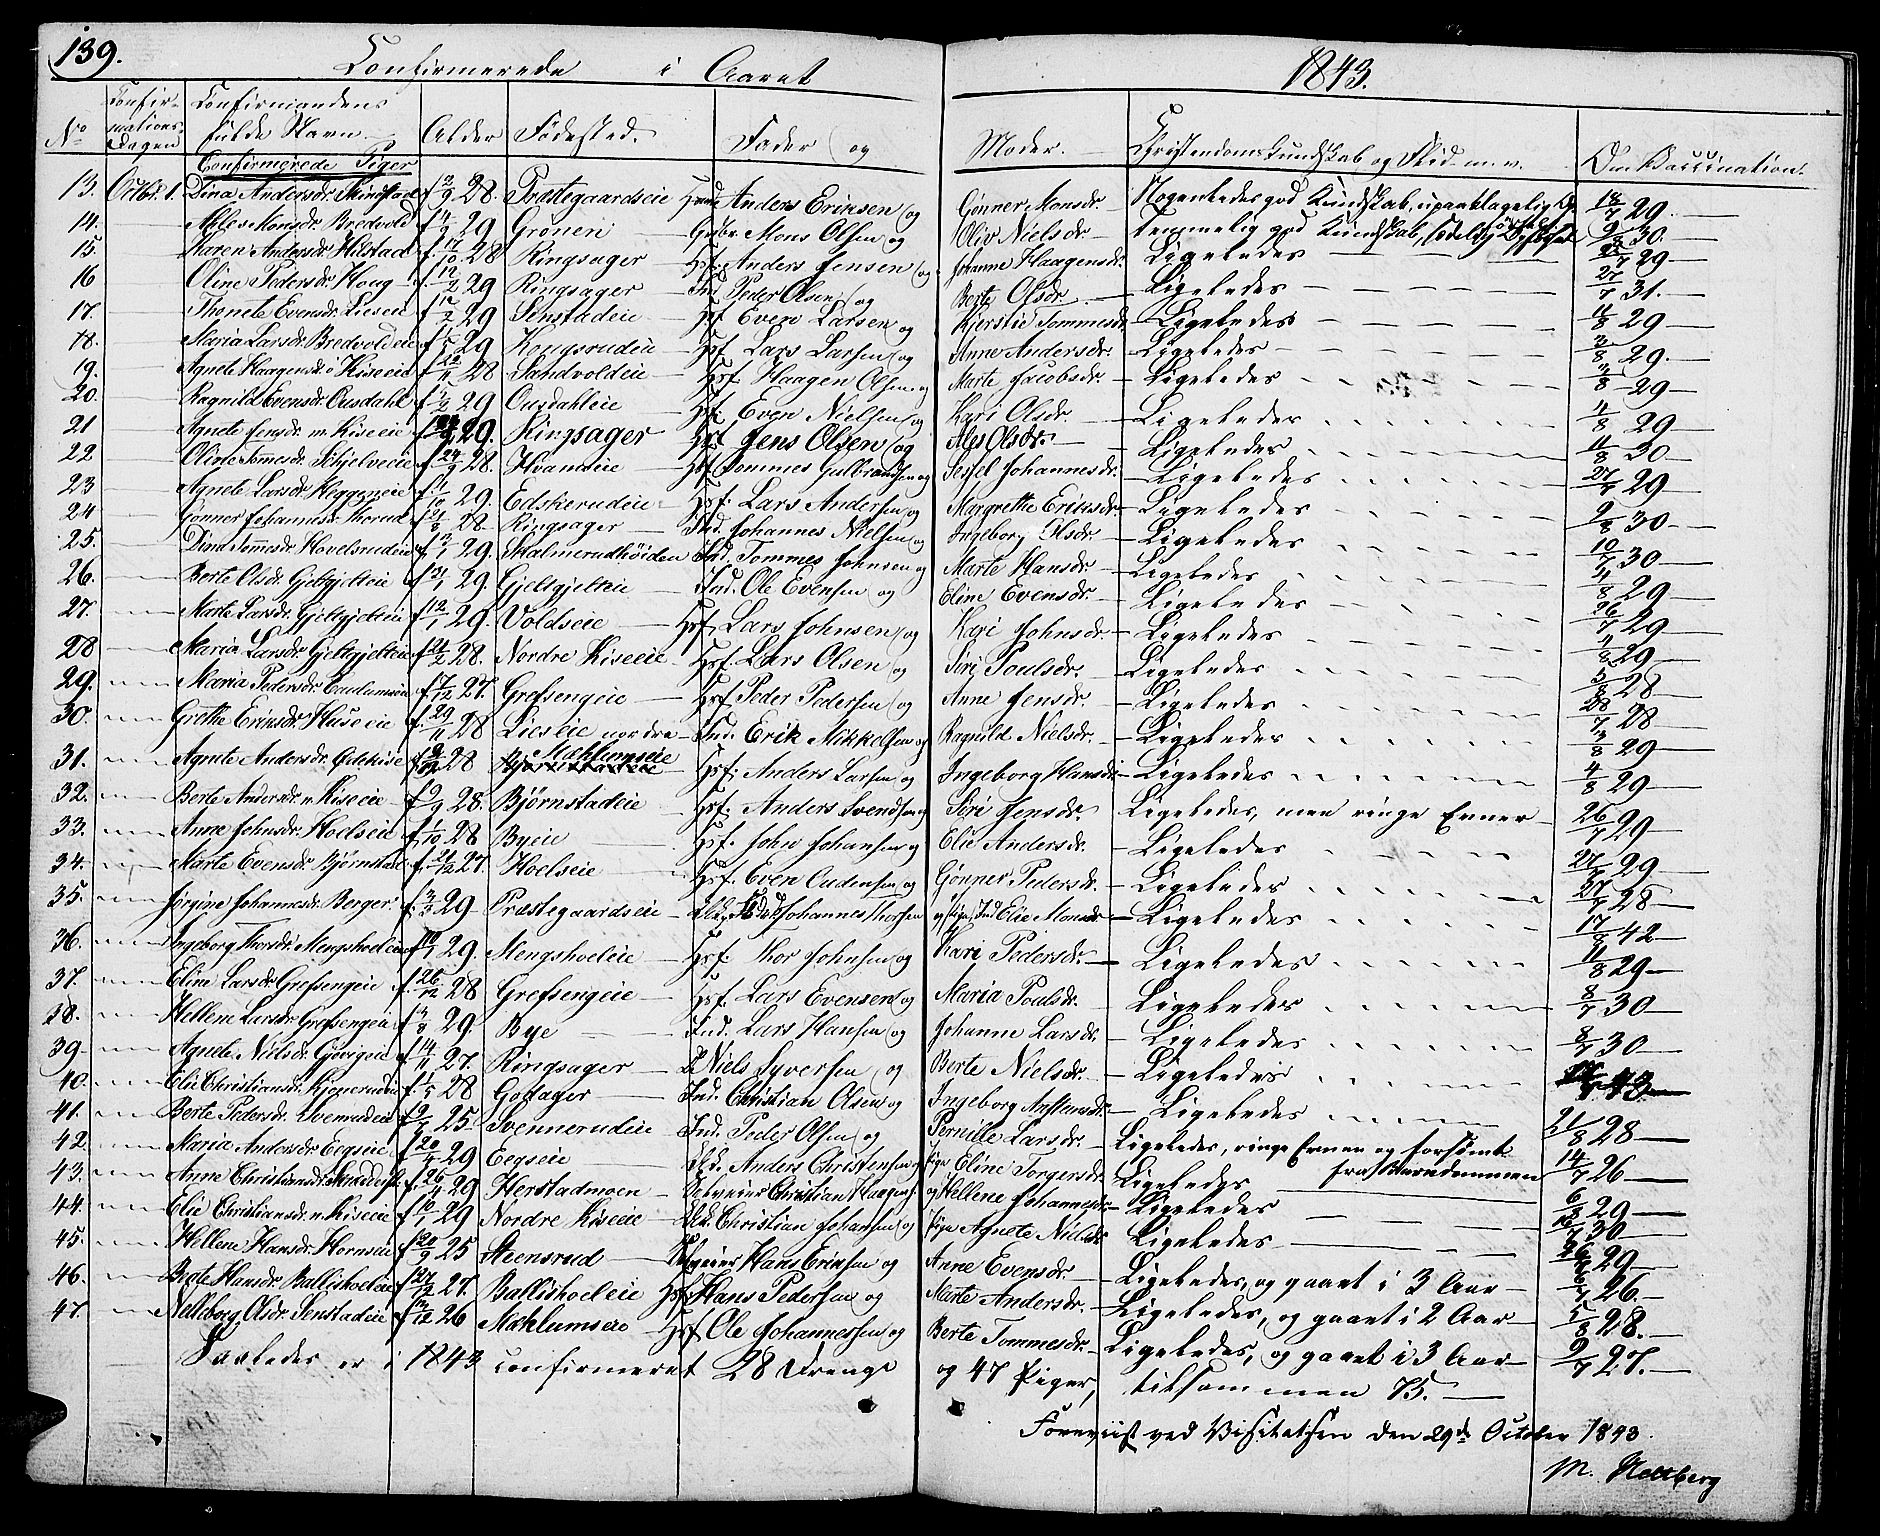 139.
Confirmerede i Aaret 1843.
No Confirmations Dagen Confirmandens fulde Navn. Alder Fødested. Fader og Moder. Christendoms Kundskab og Flid m.v. Om Vaccination.
Confirmerede Piger
13. Octbr 1. Dina Andersdr. f 28. Præstegaardseie Anders Eriksen og Gønner Monsdr. Nogenledes god Kundskab, 18/7 29.
14. Ales Monsdr. Bredvold f 29 Grønen Mons Olsen og Oliv Nielsdr. Temmelig god Kundskab, 9/8 30.
15. Karen Andersdr. f 17/10 28 Ringsager Anders Jensen og Johanne Haagensdr. Ligeledes 29
16 Oline Pedersdr. Houg f. 12/2 29 Ringsager Ind. Peder Olsen og Berte Olsdr. Ligeledes 27/7 31.
17. Thonete Evensdr. Lieseie f 12/2 29 Senstadeie Hsf Even Larsen og Kjerstie Tommesdr. Ligeledes 11/8 29
18. Maria Larsdr. Bredvoldeie f 29 Kongsrudeie Hsf. Lars Larsen og Anne Andersdr. Ligeledes 3/8 29.
19. Agnete Haagensdr. Kiseeie f 28 Sandvoldeie Hsf. Haagen Olsen og Marte Jacobsdr. Ligeledes 29
20. Ragnild Evensdr. Ousdahl f 29 Ousdahleie Hsf. Even Nielsen og Kari Olsdr. Ligeledes 4/8 29
21 Agnete Jensdr. n. Kiseeie f 29. Ringsager Hsf Jens Olsen og Ales Olsdr. Ligeledes 11/8 30
22 Oline Tomesdr. Skjelveeie f 24/9 28. Hvameie Hsf Tommes Gulbrandsen og Sessel Johannesdr. Ligeledes 27/7 29
23 Agnete Larsdr. Heggeneie f 1/10 29. Edskerudeie Hsf. Lars Andersen og Margrethe Eriksdr. Ligeledes 9/8 30
24 Gønner Johannesdr. Thorud f 21/8 28. Ringsager Ind. Johannes Nielsen og Ingeborg Olsdr. Ligeledes 10/7 30
25. Dina Tomesdr. Hovelsrudeie f 29. Skalmerudhøiden Ind. Tommes Johnsen og Marte Hansdr. Ligeledes 4/8 29
26. Berte Olsdr. Gjeltgjelteie f 31/1 29. Gjeltgjelteie Ind. Ole Evensen og Eline Evensdr. Ligeledes 26/7 29
27. Marte Larsdr. Gjeltgjelteie f 12/1 29. Voldseie Hsf. Lars Johnsen og Kari Johnsdr. Ligeledes 29
28 Maria Larsdr. Gjeltgjelteie f 21/2 28. Nordre Kiseeie Hsf. Lars Olsen og Siri Poulsdr. Ligeledes 28
29. Maria Pedersdr. f 7/12 27. Grefsengeie Hsf Peder Pedersen og Anne Jensdr. Ligeledes 28/7 28
30. Grethe Eriksdr. Huseeie f. 29/11 28 Lieseie nordre Ind. Erik Mikkelsen og Ragnild Nielsdr. Ligeledes 29
31. Agnete Andersdr. f 28 Mæhlumseie Hsf. Anders Larsen og Ingeborg Hansdr. Ligeledes 4/8 29
32. Berte Andersdr. n. Kiseeie f 9/9 28. Bjørnstadeie Hsf. Anders Svendsen og Siri Jensdr. Ligeledes, men ringe Evner 26/7 29
33. Anne Johnsdr. Hoelseie f 1/10 28 Byeie Hsf. John Johansen og Elie Andersdr. Ligeledes 27/7 29
34. Marte Evensdr. Bjørnstad f 21/12 27. Hoelseie Hsf. Even Oudensen og Gønner Pedersdr. Ligeledes 27/7 28
35. Jørgine Johannesdr. Berger f. 3/3 29 Præstegaardseie Johannes Thorsen og Pige Ind Elie Monsdr. Ligeledes 17/8 42
36. Ingeborg Thorsdr. Mengshoeleie f 10/1 29. Mengshoeleie Hsf. Thor Johnsen og Kari Pedersdr. Ligeledes 11/8 29
37. Eline Larsdr. Grefsengeie f. 26/12 28 Grefsengeie Hsf. Lars Evensen og Maria Poulsdr. Ligeledes 8/7 30
38. Hellene Larsdr. Grefsengeie f 29 Bye Ind. Lars Hansen og Johanne Larsdr. Ligeledes 8/7 30
39. Agnete Nielsdr. Gjøvigeie f 14/11 27. Ringsager Niels Syversen og Berte Nielsdr. Ligeledes 43
40. Elie Christiansdr. f 1/5 28 Godager Ind. Christian Olsen og Ingeborg Ligeledes 21/8 28
41. Berte Pedersdr. Svenrudeie f 25. Svennerudeie Ind. Peder Olsen og Pernille Larsdr. Ligeledes, ringe Evner og forsømt fra Barndommen 14/7 26
42. Maria Andersdr. Eegseie f 29 Eegseie Anders Christensen og Pige Eline Torgersdr. Ligeledes 29
43. Anne Christiansdr. f 29 Herstadmoen Selveier Christian Haagens. og Hellene Johannesdr. Ligeledes 30
44. Elie Christiansdr. n. Kiseeie f 10/1 29 Nordre Kiseeie Christian Johansen og Pige Agnete Nielsdr. Ligeledes 29
45. Hellene Hansdr. Hornseie f 20/9 25 Steensrud Selveier Hans Eriksen og Anne Evensdr. Ligeledes, og gaaet i 3 Aar 26.
46. Berte Hansdr. Ballishoeleie f 27/2 27. Ballishoeleie Hsf Hans Pedersen og Marte Andersdr. Ligeledes, og gaaet i 2 Aar 5/8 28.
47. Nelleborg Olsdr. Senstadeie f 26 Mæhlumseie Hsf Ole Johannessen og Berte Tommesdr. Ligeledes, og gaaet i 3 Aar 9/7 27.
Saaledes er i 1843 confirmeret 28 Drenge og 47 Piger, tilsammen 75.
Foreviist ved Visitatsen den 29de October 1843.
M. Neltberg